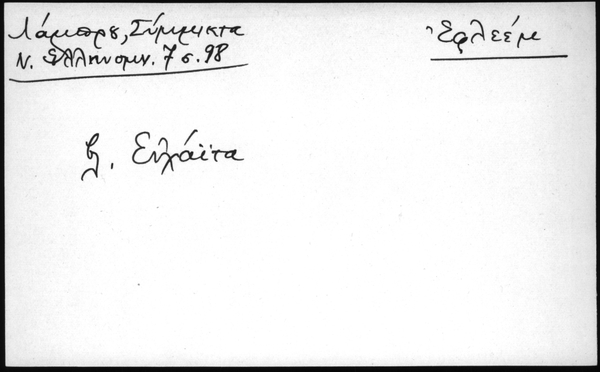 Λάμπρου, Σύμμικτα
Ν. Ελληνομν. 7 σ. 98
Ἐφλεέμ
βλ. Ευλάϊτα